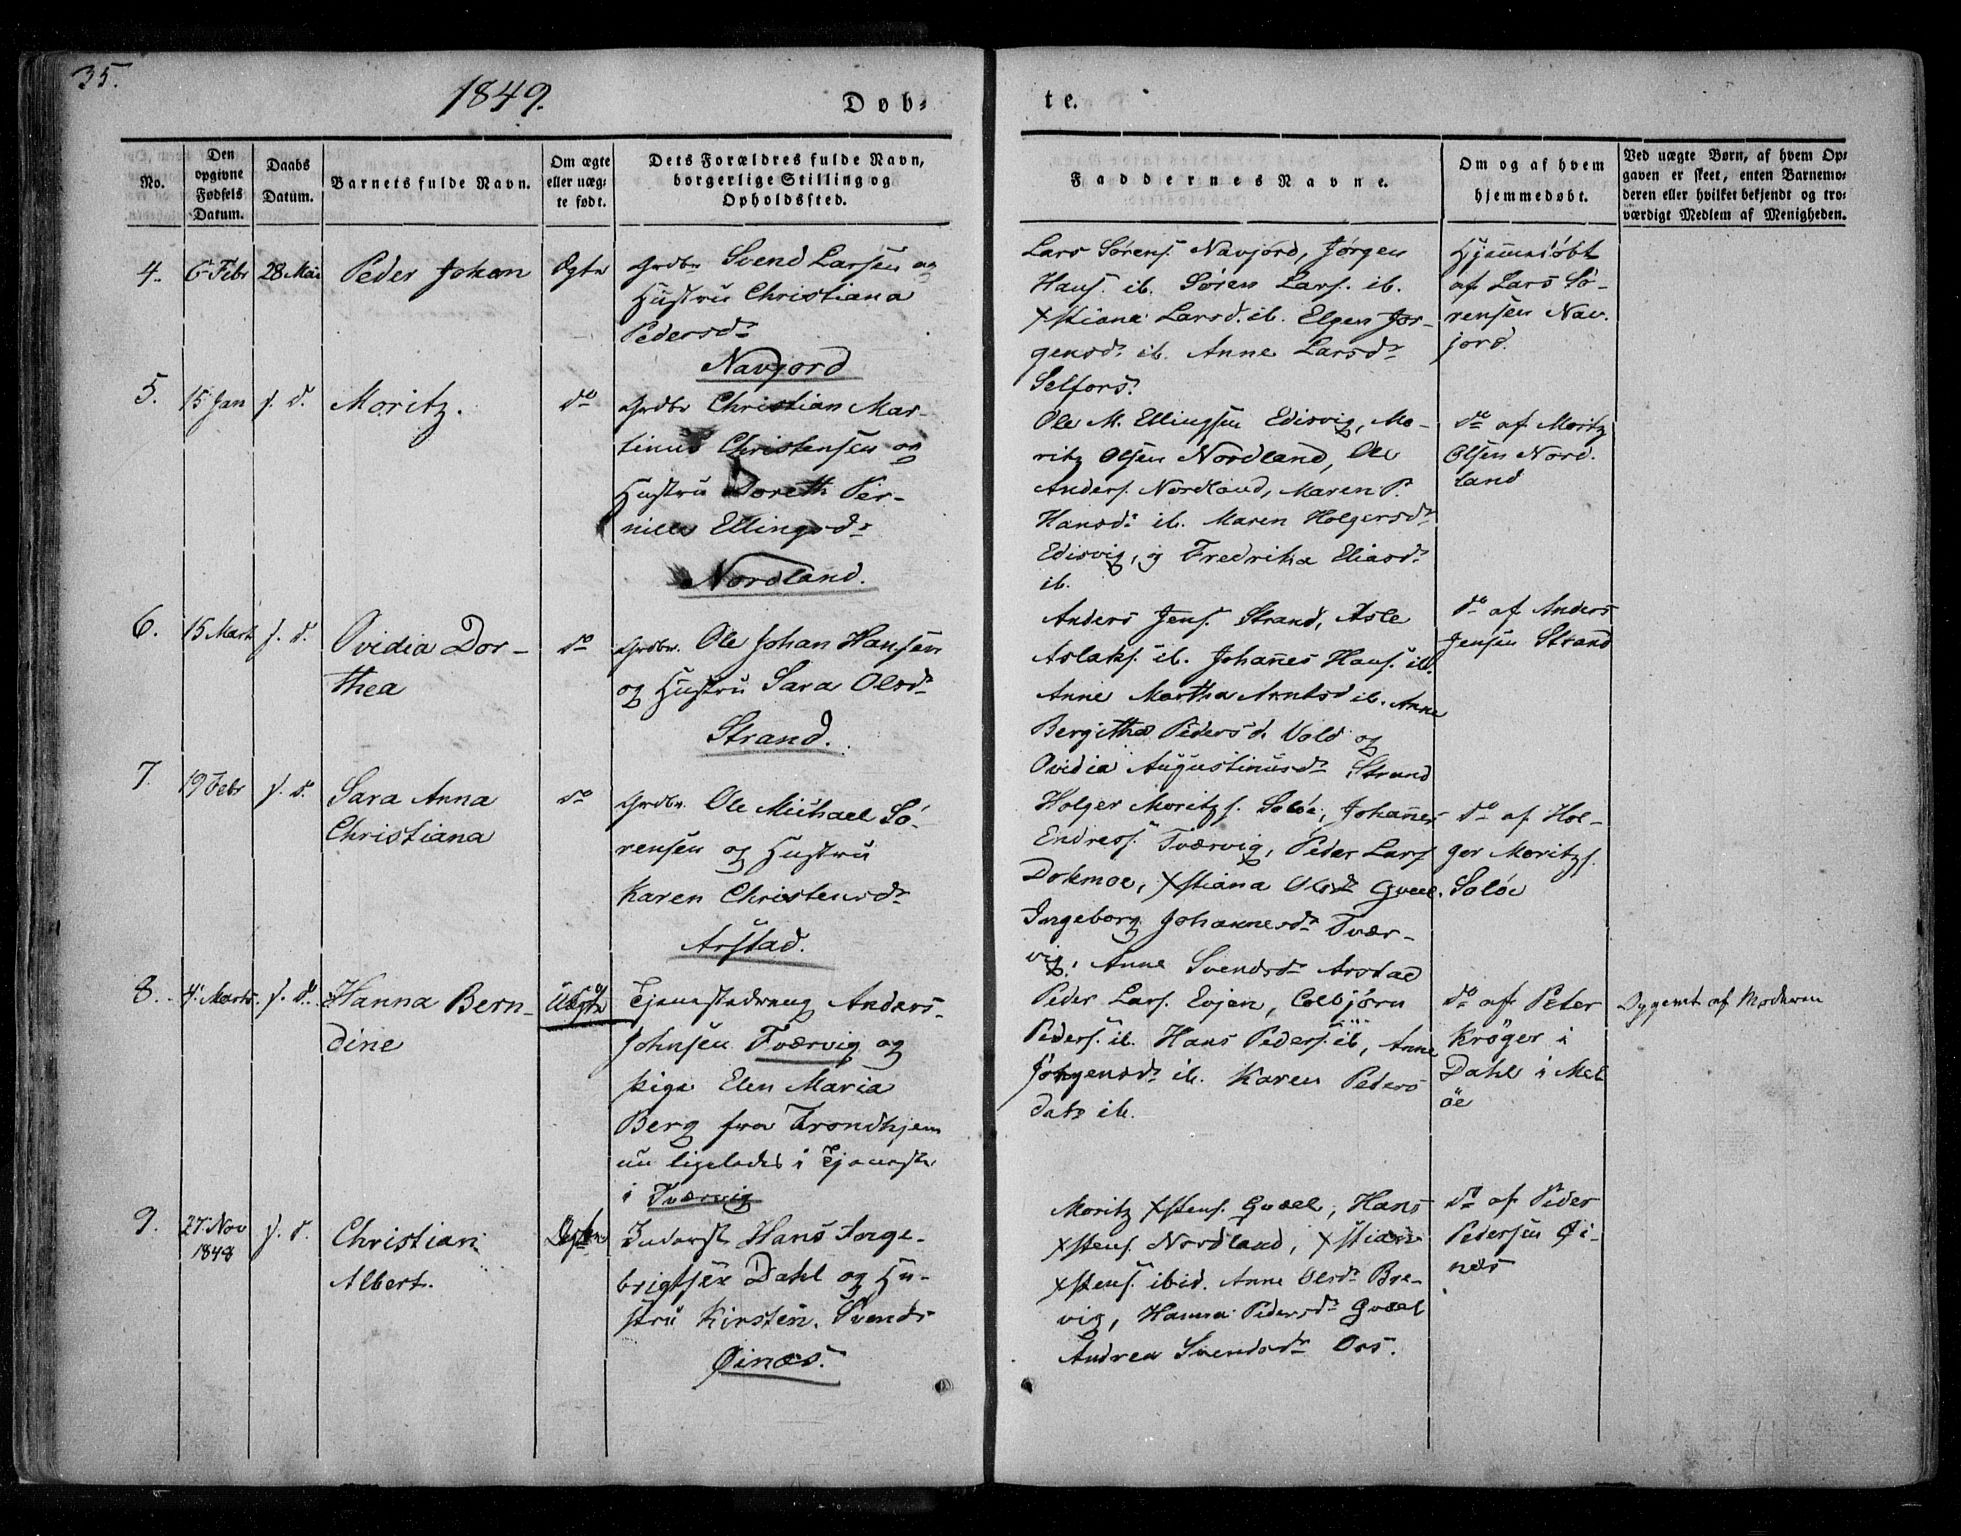 35.
1849.
Døb-
te.
No.
Den
opgivne
Fødsels
Datum.
Daabs
Datum.
Barnets fulde Navn.
Om ægte
eller uæg-
te født.
Dets Forældres fulde Navn,
borgerlige Stilling og
Opholdssted.
Faddernes Navne.
Om og af hvem
hjemmedøbt.
Ved uægte Børn, af hvem Op-
gaven er skeet, enten Barnemo-
deren eller hvilket bekjendt og tro-
værdigt Medlem af Menigheden.
4.
6 Febr
28 Mai
Peder Johan
Ægte
Grdbr Svend Larsen og
Hustru Christiana
Pedersdr
Navjord
Lars Sørens. Navjord, Jørgen
Hans. ib. Søren Lars. ib.
Xstiane Larsd. ib. Elgen Jør-
gensdr ib. Anne Larsdr
Selfors.
Hjemmedøbt
af Lars Sø-
rensen Nav-
jord.
5.
15 Jan
s. d.
Moritz.
do
Grdbr Christian Mar-
tinus Christensen og
Hustru Doreth Per-
nille Ellingsdr
Nordland.
Ole M. Ellingsen Edisvig, Mo-
ritz Olsen Nordland, Ole
Anders. Nordland, Maren P.
Hansdr ib. Maren Holgersdr
Edisvig, og Fredrika Eliasdr
ib.
do af Moritz
Olsen Nord-
land
6.
15 Marts
s. d.
Ovidia Dor-
thea
do
Grdbr. Ole Johan Hansen
og Hustru Sara Olsdr
Strand.
Anders Jens. Strand, Asle
Aslaks. ib. Johannes Hans. ib.
Anne Martha Arntsd ib. Anne
Bergitha Pedersd. Vold og
Ovidia Augustinusdr Strand
do af Anders
Jensen Strand
7.
19 Febr
s. d.
Sara Anna
Christiana
do
Grdbr. Ole Michael Sø-
rensen og Hustru
Karen Christensdr
Arstad.
Holger Moritzs. Soløe, Johannes
Endress. Tværvig, Peder Lars
Dokmoe, Xstiana Olsdr Gvæel.
Ingeborg Johannesdr Tvær-
vig, Anne Svendsdr Arstad
do af Hol-
ger Moritzs.
Soløe
8.
4. Marts
s. d.
Hanna Bern-
dine
Uægte
Tjenestedreng Anders
Johnsen Tværvig og
Pige Elen Maria
Berg fra Trondhjem
nu ligeledes i Tjeneste
i Tværvig
Peder Lars. Evjen, Colbjørn
Peders. ib. Hans Peders. ib, Anne
Jørgensdr ib. Karen Peders
datr ib.
do af Peter
Krøger i
Dahl i Mel
øe
Opgivet af Moderen
9.
27. Nov
1848
s. d.
Christian
Albert.
Inderst Hans Inge-
brigtsen Dahl og Hu-
stru Kirsten Svends
Øinæs.
Moritz Xstens. Gvæel, Hans
Xstens. Nordland, Xstian
Xstens. ibid. Anne Olsdr Bre-
vig, Hanna Pedersdr Gvæel
Andrea Svendsdr Oos.
do af Peder
Pedersen Øi-
næs